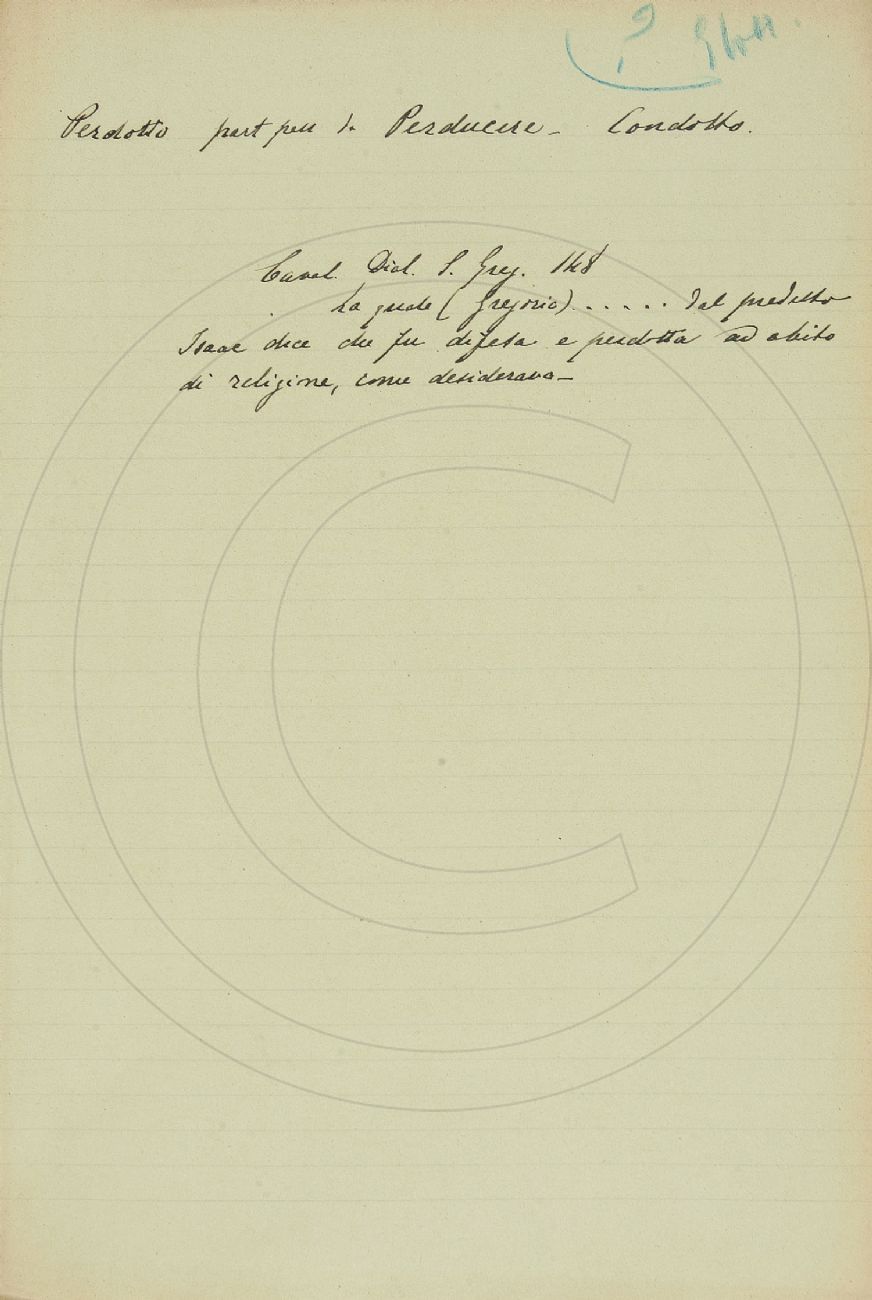 P Gloss.
Perdotto part pass di Perducere - Condotto.
Caval. Dial. S. Greg. 148
La quale (Gregoria) ...... dal predetto
Isaac dice che fu difesa e perdotta ad abito
di religione, come desiderava -